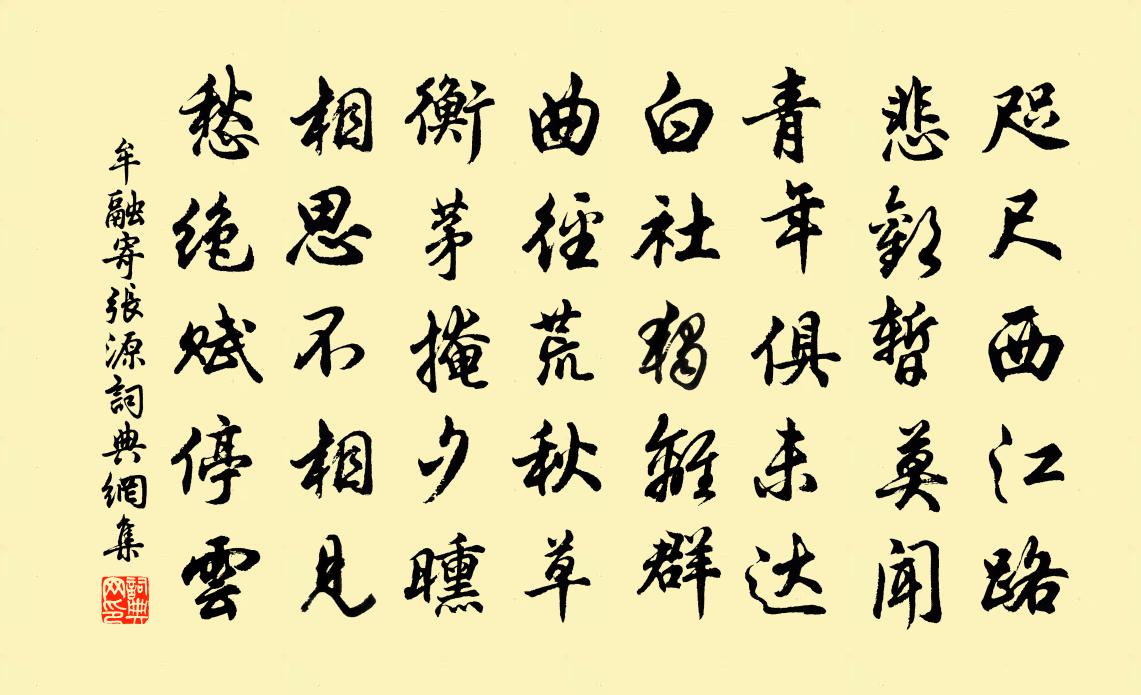 咫尺西江路
悲歡暫莫闻
青年俱未达
白社獨離群
曲徑荒秋草
衡茅掩夕曛
相思不相見
愁绝賦停雲
牟融寄張源詞典網集
詞典网印